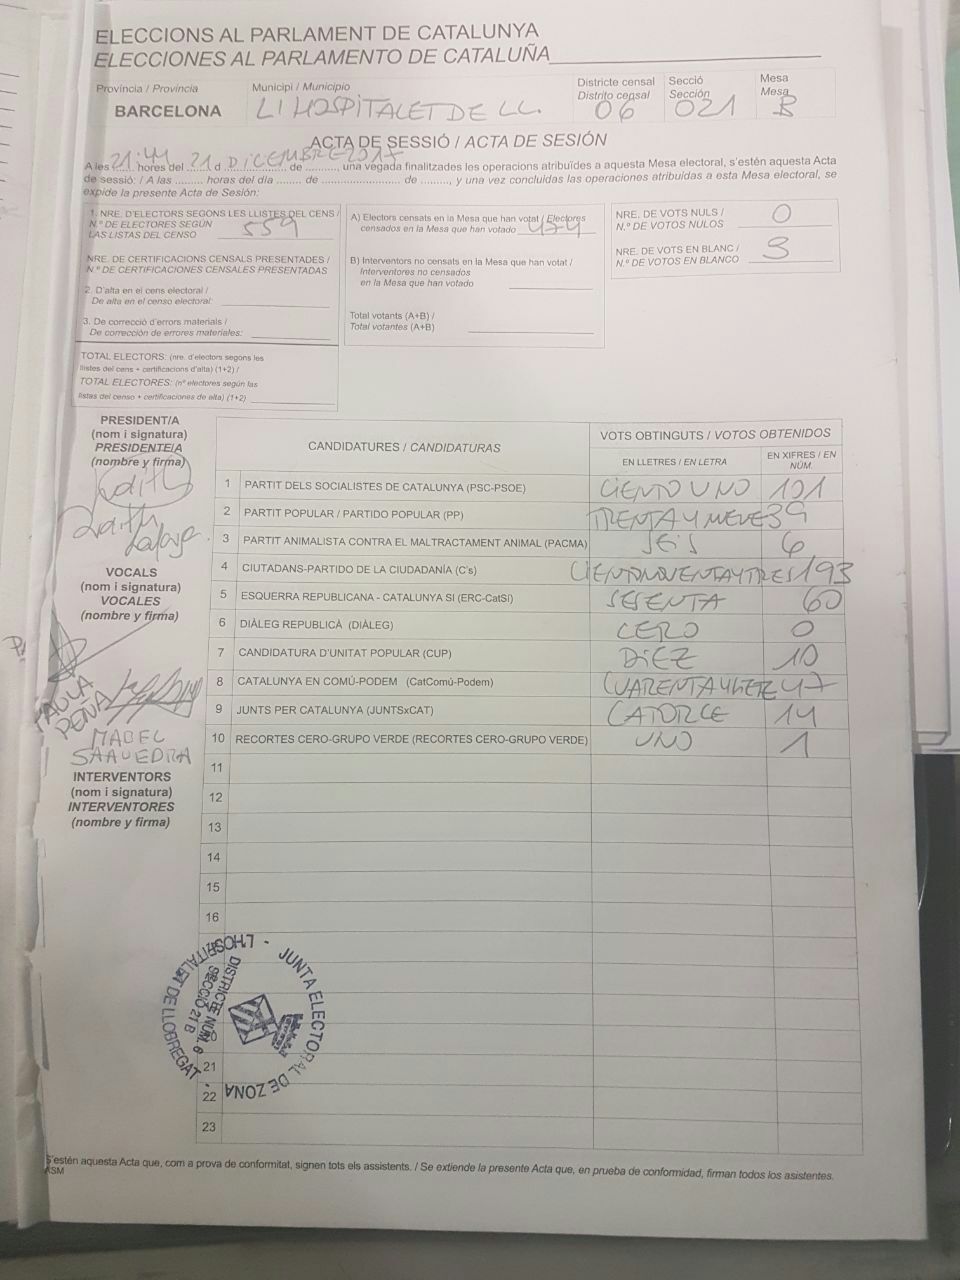 ELECCIONS AL PARLAMENT DE CATALUNYA
ELECCIONES AL PARLAMENTO DE CATALUÑA
Província / Provincia
BARCELONA
Municipi / Municipio
L'HOSPITALET DE LL.
Districte censal
Distrito censal
06
Secció
Sección
021
Mesa
Mesa
B
ACTA DE SESSIÓ / ACTA DE SESIÓN
A les 21:44 hores del 21 d DICEMBRE 2017 de ........., una vegada finalitzades les operacions atribuïdes a aquesta Mesa electoral, s'estén aquesta Acta
de sessió: / A las ......... horas del día ........ de ........................ de ........., y una vez concluidas las operaciones atribuidas a esta Mesa electoral, se
expide la presente Acta de Sesión:
1. NRE. D'ELECTORS SEGONS LES LLISTES DEL CENS /
N.º DE ELECTORES SEGÚN
LAS LISTAS DEL CENSO 559
NRE. DE CERTIFICACIONS CENSALS PRESENTADES /
N.º DE CERTIFICACIONES CENSALES PRESENTADAS
2. D'alta en el cens electoral /
De alta en el censo electoral:
3. De correcció d'errors materials /
De corrección de errores materiales:
TOTAL ELECTORS: (nre. d'electors segons les
llistes del cens + certificacions d'alta) (1+2) /
TOTAL ELECTORES: (nº electores según las
listas del censo + certificaciones de alta) (1+2)
A) Electors censats en la Mesa que han votat / Electores
censados en la Mesa que han votado 474
B) Interventors no censats en la Mesa que han votat /
Interventores no censados
en la Mesa que han votado
Total votants (A+B) /
Total votantes (A+B)
NRE. DE VOTS NULS /
N.º DE VOTOS NULOS 0
NRE. DE VOTS EN BLANC /
N.º DE VOTOS EN BLANCO 3
PRESIDENT/A
(nom i signatura)
PRESIDENTE/A
(nombre y firma)
VOCALS
(nom i signatura)
VOCALES
(nombre y firma)
PAULA
PEÑA
MABEL
SAAVEDRA
INTERVENTORS
(nom i signatura)
INTERVENTORES
(nombre y firma)
CANDIDATURES / CANDIDATURAS
VOTS OBTINGUTS / VOTOS OBTENIDOS
EN LLETRES / EN LETRA
EN XIFRES / EN NÚM.
1 PARTIT DELS SOCIALISTES DE CATALUNYA (PSC-PSOE) CIENTO UNO 101
2 PARTIT POPULAR / PARTIDO POPULAR (PP) TRENTA Y NUEVE 39
3 PARTIT ANIMALISTA CONTRA EL MALTRACTAMENT ANIMAL (PACMA) SEIS 6
4 CIUTADANS-PARTIDO DE LA CIUDADANÍA (C's) CIENTONOVENTAYTRES 193
5 ESQUERRA REPUBLICANA - CATALUNYA SI (ERC-CatSI) SESENTA 60
6 DIÀLEG REPUBLICÀ (DIÀLEG) CERO 0
7 CANDIDATURA D'UNITAT POPULAR (CUP) DIEZ 10
8 CATALUNYA EN COMÚ-PODEM (CatComú-Podem) 47
9 JUNTS PER CATALUNYA (JUNTSxCAT) CATORCE 14
10 RECORTES CERO-GRUPO VERDE (RECORTES CERO-GRUPO VERDE) UNO 1
11
12
13
14
15
16
21
22
23
JUNTA ELECTORAL DE ZONA - L'HOSPITALET DE LLOBREGAT -
DISTRICTE NÚM. 6
SECCIÓ 21 B
S'estén aquesta Acta que, com a prova de conformitat, signen tots els assistents. / Se extiende la presente Acta que, en prueba de conformidad, firman todos los asistentes.
ASM